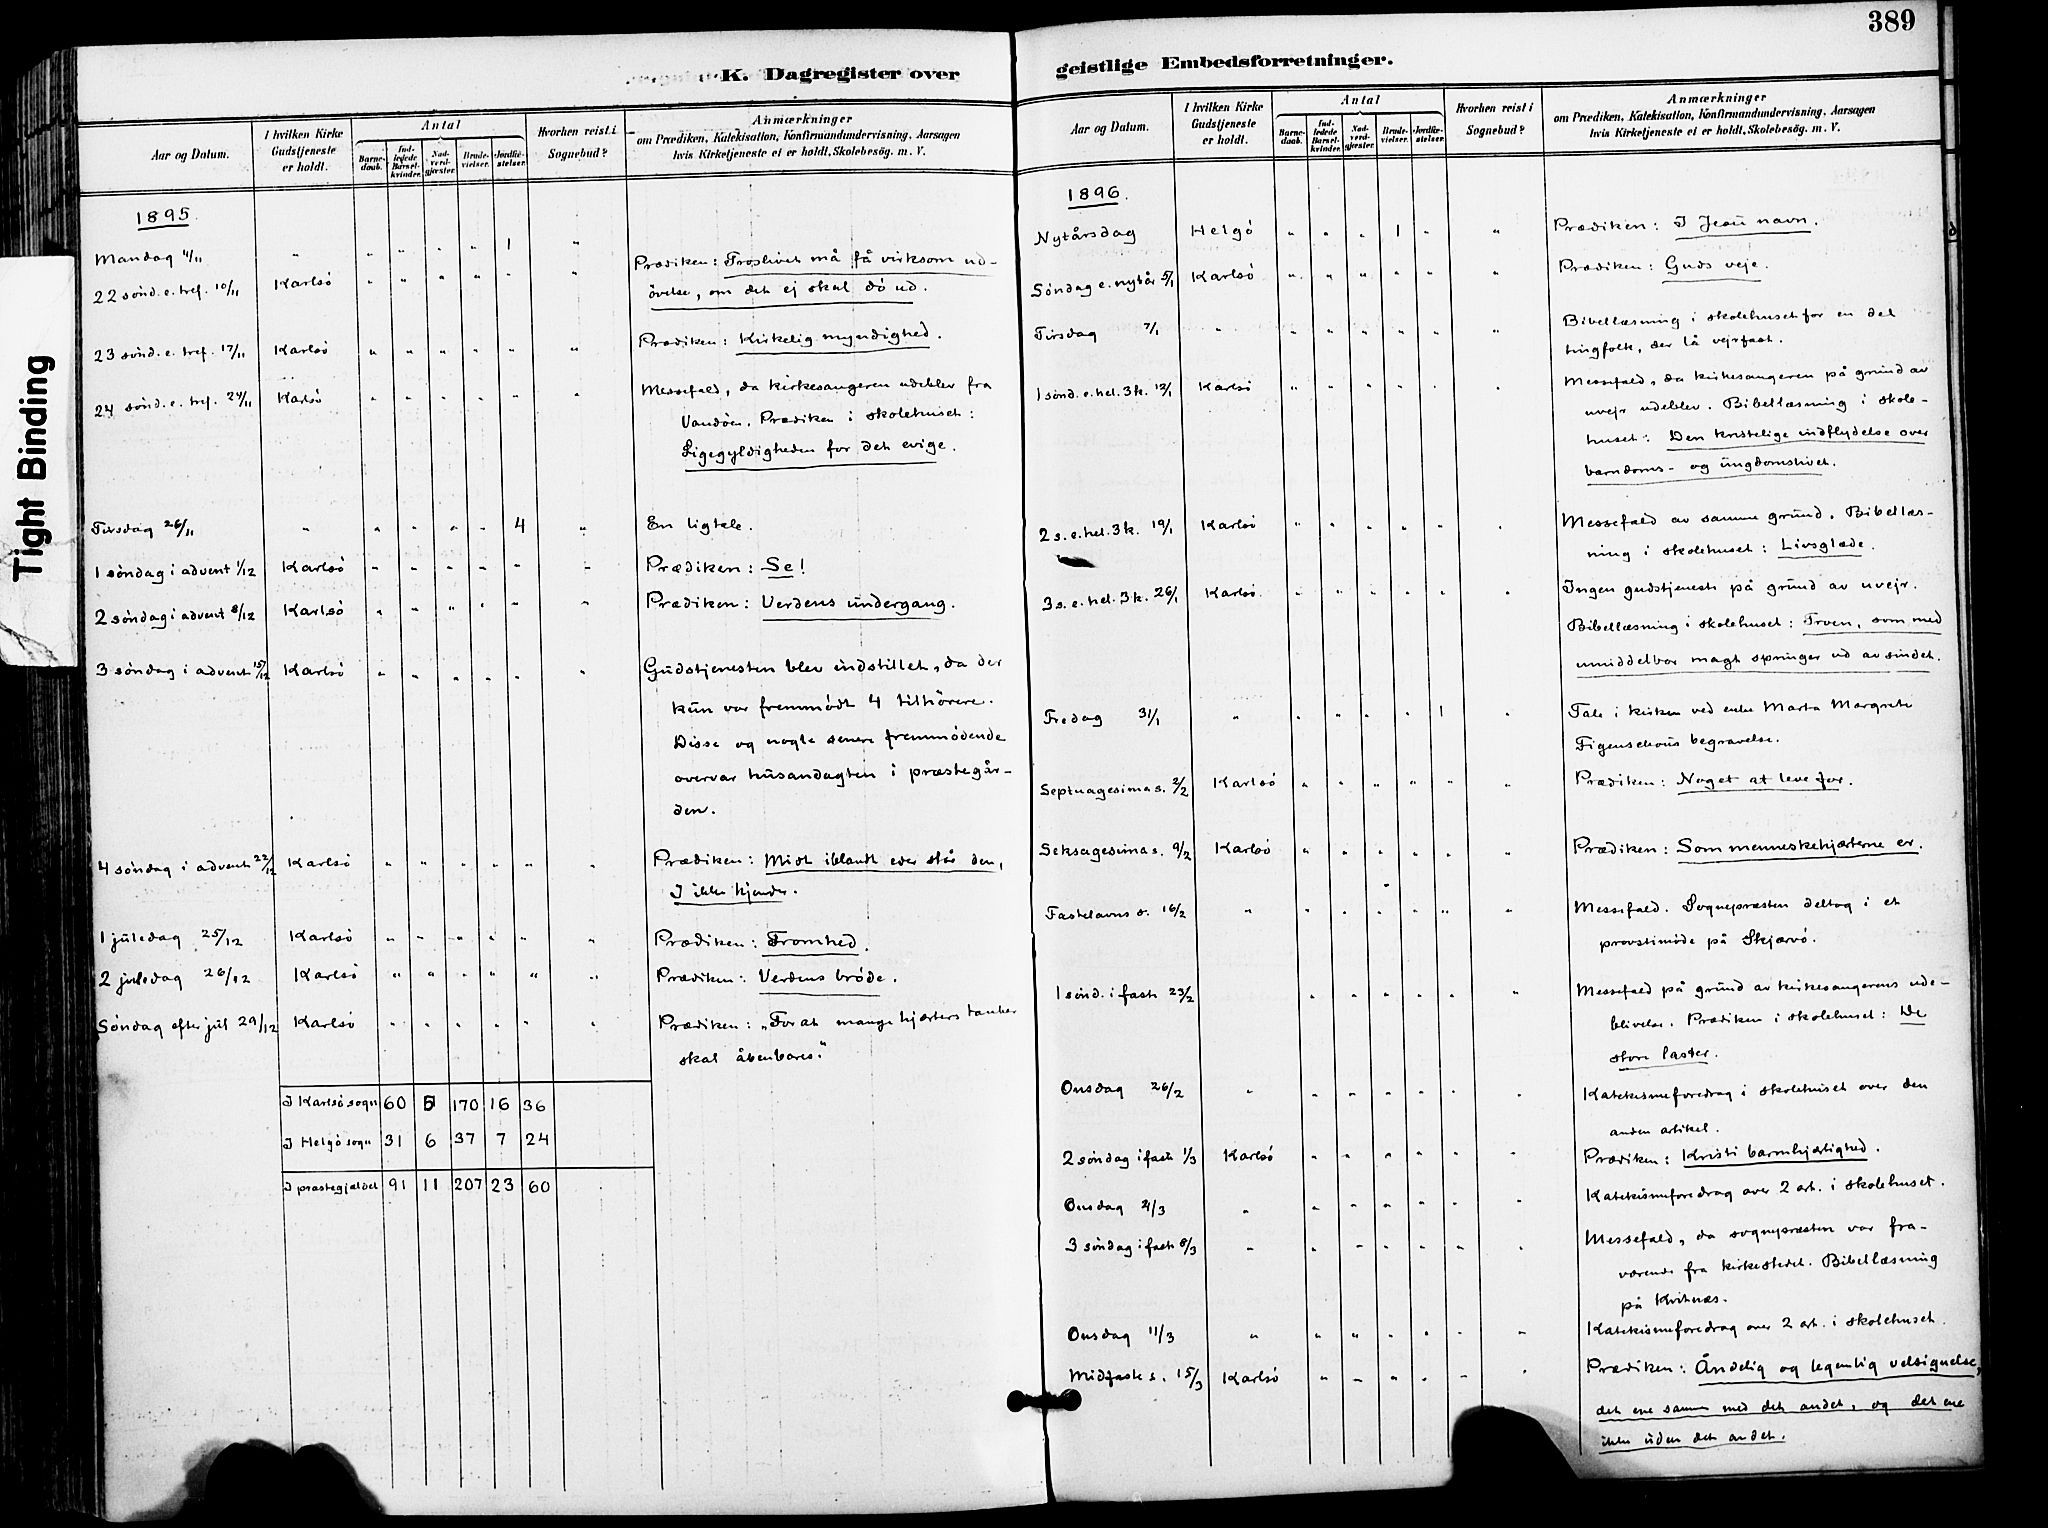 389
Tight Binding
K. Dagregister over
geistlige Embedsforretninger.
Aar og Datum.
I hvilken Kirke Gudstjeneste er holdt.
Antal
Barnedaab.
Indledede Barselkvinder.
Nadverdgjæster.
Brudevielser.
Jordfæstelser.
Hvorhen reist i Sognebud?
Anmærkninger
om Prædiken, Katekisation, Konfirmandundervisning, Aarsagen
hvis Kirketjeneste ei er holdt, Skolebesøg. m. V.
1895.
Mandag 4/11 " " " " " 1 "
22 sønd. e. tref. 10/11 Karlsö " " " " " " Prædiken: Troslivet må få virksom ud-
övelse, om det ej skal dö ud.
23 sønd. e. tref. 17/11 Karlsö " " " " " " Prædiken: Kirkelig myndighed.
24 sønd. e. tref. 24/11 Karlsö " " " " " " Messefald, da kirkesangeren udeblev fra
Vandöen. Prædiken i skolehuset:
Ligegyldigheden for det evige.
Tirsdag 26/11 " " " " " 4 " En ligtale.
1 söndag i advent 1/12 Karlsö " " " " " " Prædiken: Se!
2 söndag i advent 8/12 Karlsö " " " " " " Prædiken: Verdens undergang.
3 söndag i advent 15/12 Karlsö " " " " " " Gudstjenesten blev indstillet, da der
kun var fremmödt 4 tilhörere.
Disse og nogle senere fremmödende
overvar husandagten i præstegår-
den.
4 söndag i advent 22/12 Karlsö " " " " " " Prædiken: Midt iblandt eder står den,
I ikke kjender.
1 juledag 25/12 Karlsö " " " " " " Prædiken: Fromhed.
2 juledag 26/12 Karlsö " " " " " " Prædiken: Verdens bröde.
Söndag efter jul 29/12 Karlsö " " " " " " Prædiken: "For at mange hjærters tanker
skal åbenbares."
I Karlsö sogn 60 5 170 16 36
I Helgö sogn 31 6 37 7 24
I præstegjældet 91 11 207 23 60
Aar og Datum.
I hvilken Kirke Gudstjeneste er holdt.
Antal
Barnedaab.
Indledede Barselkvinder.
Nadverdgjæster.
Brudevielser.
Jordfæstelser.
Hvorhen reist i Sognebud?
Anmærkninger
om Prædiken, Katekisation, Konfirmandundervisning, Aarsagen
hvis Kirketjeneste ei er holdt, Skolebesøg. m. V.
1896.
Nytårsdag Helgö " " " 1 " " Prædiken: I Jesu navn.
Söndag e. nytår 5/1 Karlsö " " " " " " Prædiken: Guds veje.
Tirsdag 7/1 " " " " " " " Bibellæsning i skolehuset for en del
tingfolk, der lå vejrfast.
1 sønd. e. hel. 3 k. 12/1 Karlsö " " " " " " Messefald, da kirkesangeren på grund av
uvejr udeblev. Bibellæsning i skole-
huset: Den kristelige indflydelse over
barndoms- og ungdomslivet.
2 s. e. hel. 3 k. 19/1 Karlsö " " " " " " Messefald av samme grund. Bibellæs-
ning i skolehuset: Livsglæde.
3 s. e. hel. 3 k. 26/1 Karlsö " " " " " " Ingen gudstjeneste på grund av uvejr.
Bibellæsning i skolehuset: Troen, som med
umiddelbar magt springer ud av sindet.
Fredag 31/1 " " " " " 1 " Tale i kirken ved enke Marta Margrete
Figenschous begravelse.
Septuagesima s. 2/2 Karlsö " " " " " " Prædiken: Noget at leve for.
Seksagesima s. 9/2 Karlsö " " " " " " Prædiken: Som menneskehjærterne er.
Fastelavns s. 16/2 " " " " " " " Messefald. Sognepræsten deltog i et
provstimöde på Skjærvö.
1 sønd. i faste 23/2 " " " " " " Messefald på grund av kirkesangerens ude-
blivelse. Prædiken i skolehuset: De
store laster.
Onsdag 26/2 " " " " " " " Katekismeforedrag i skolehuset over den
anden artikel.
2 söndag i faste 1/3 Karlsö " " " " " " Prædiken: Kristi barmhjærtighed.
Onsdag 4/3 " " " " " " " Katekismeforedrag over 2 art. i skolehuset.
3 söndag i faste 8/3 " " " " " " " Messefald, da sognepræsten var fra-
værende fra kirkestedet. Bibellæsning
på Kvitnæs.
Onsdag 11/3 " " " " " " " Katekismeforedrag over 2 art. i skolehuset.
Midfaste s. 15/3 Karlsö " " " " " " Prædiken: Åndelig og legemlig velsignelse,
det ene sammen med det andet, og det ene
ikke uden det andet.